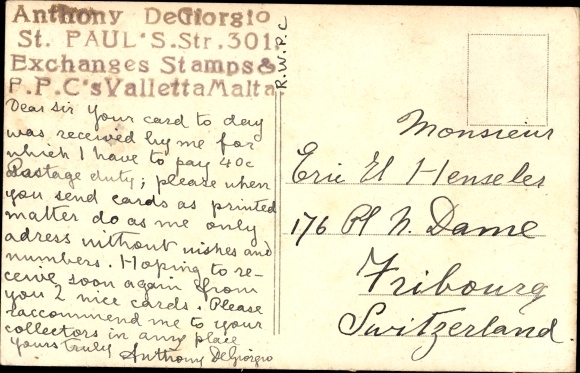 Anthony DeGiorgio
St. PAUL'S.Str.301
Exchanges Stamps&
P.P.C'sVallettaMalta.
R.W.P.C
Dear Sir Your card to day
was received by me for
which I have to pay 40c
Postage duty; please when
you send cards as printed
matter do as me only
adress without wishes and
numbers. Hoping to re-
ceive soon again from
you 2 nice cards. Please
raccommend me to your
collectors in any place
yours truly Anthony DeGiorgio
Monsieur
Eric U Henseler
176 Pl N. Dame
Fribourg
Switzerland.